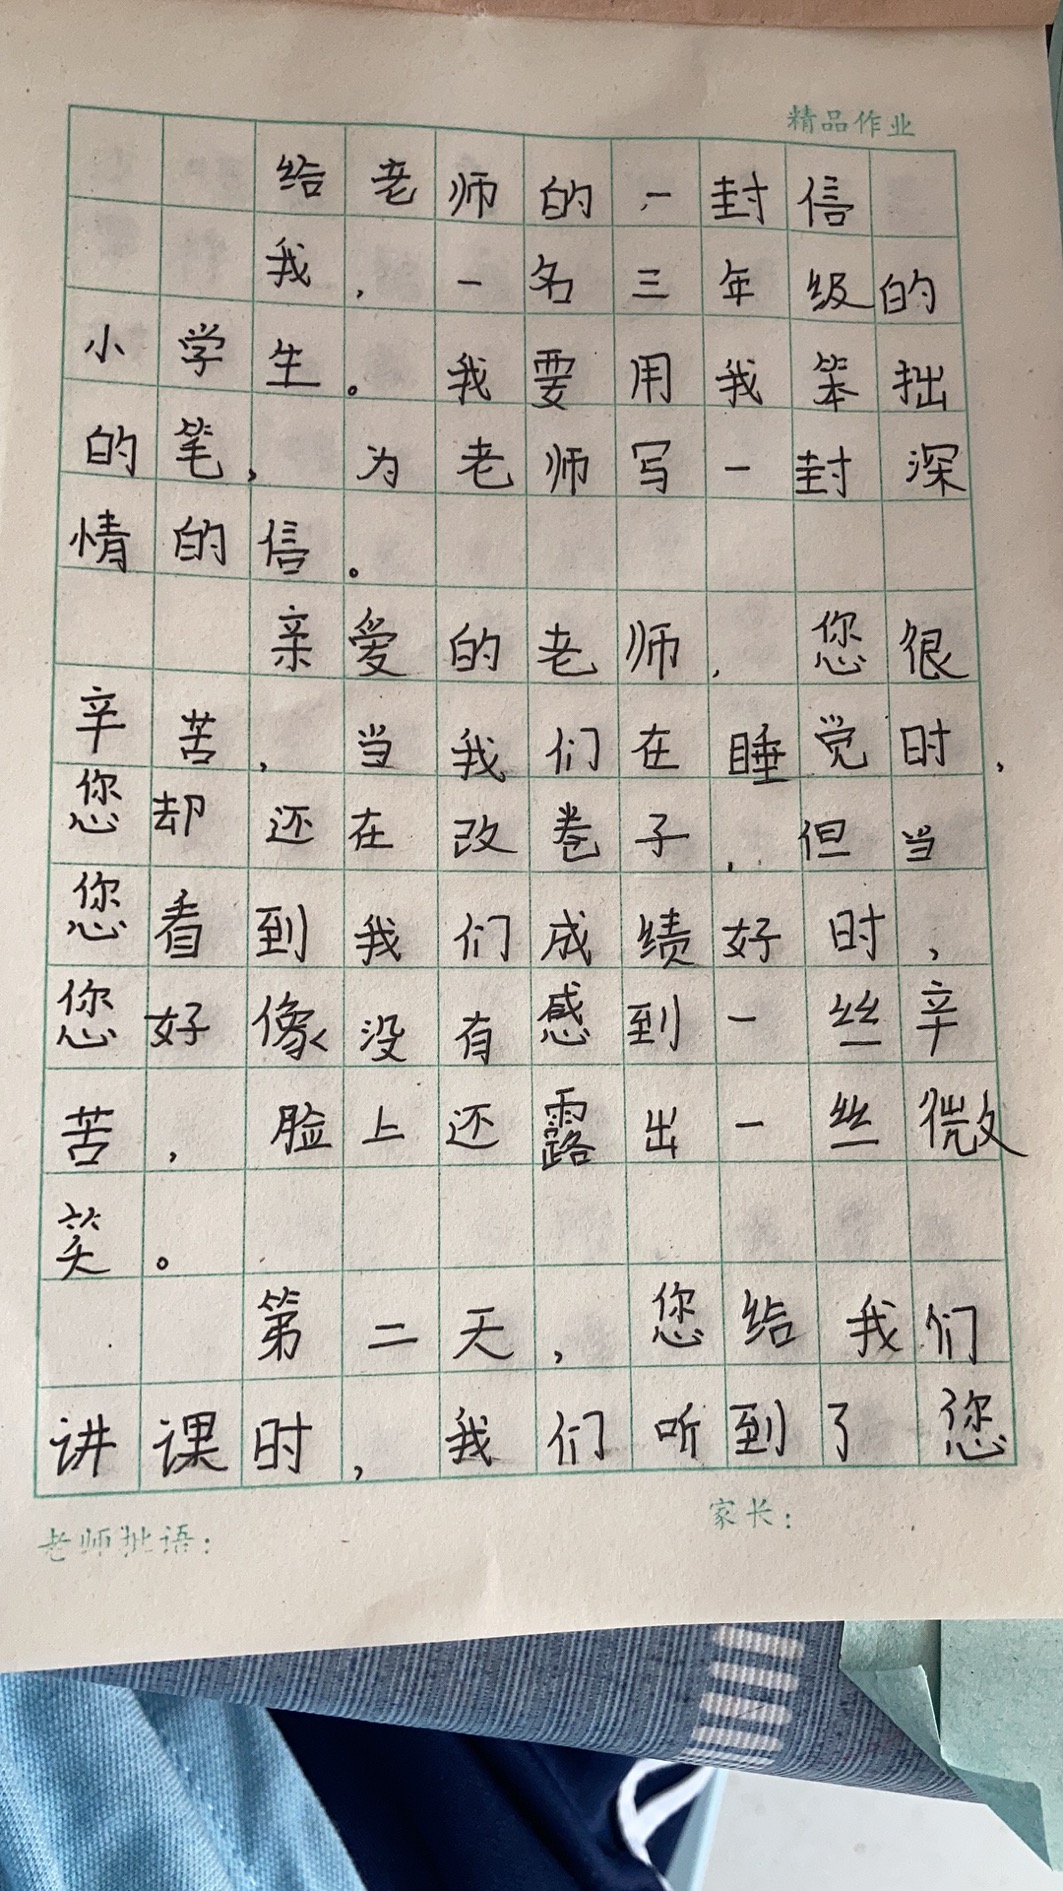 精品作业
给老师的一封信
我，一名三年级的
小学生。我要用我笨拙
的笔，为老师写一封深
情的信。
亲爱的老师，您很
辛苦，当我们在睡觉时，
您却还在改卷子，但当
您看到我们成绩好时，
您好像没有感到一丝辛
苦，脸上还露出一丝微
笑。
第二天，您给我们
讲课时，我们听到了您
老师批语：
家长：